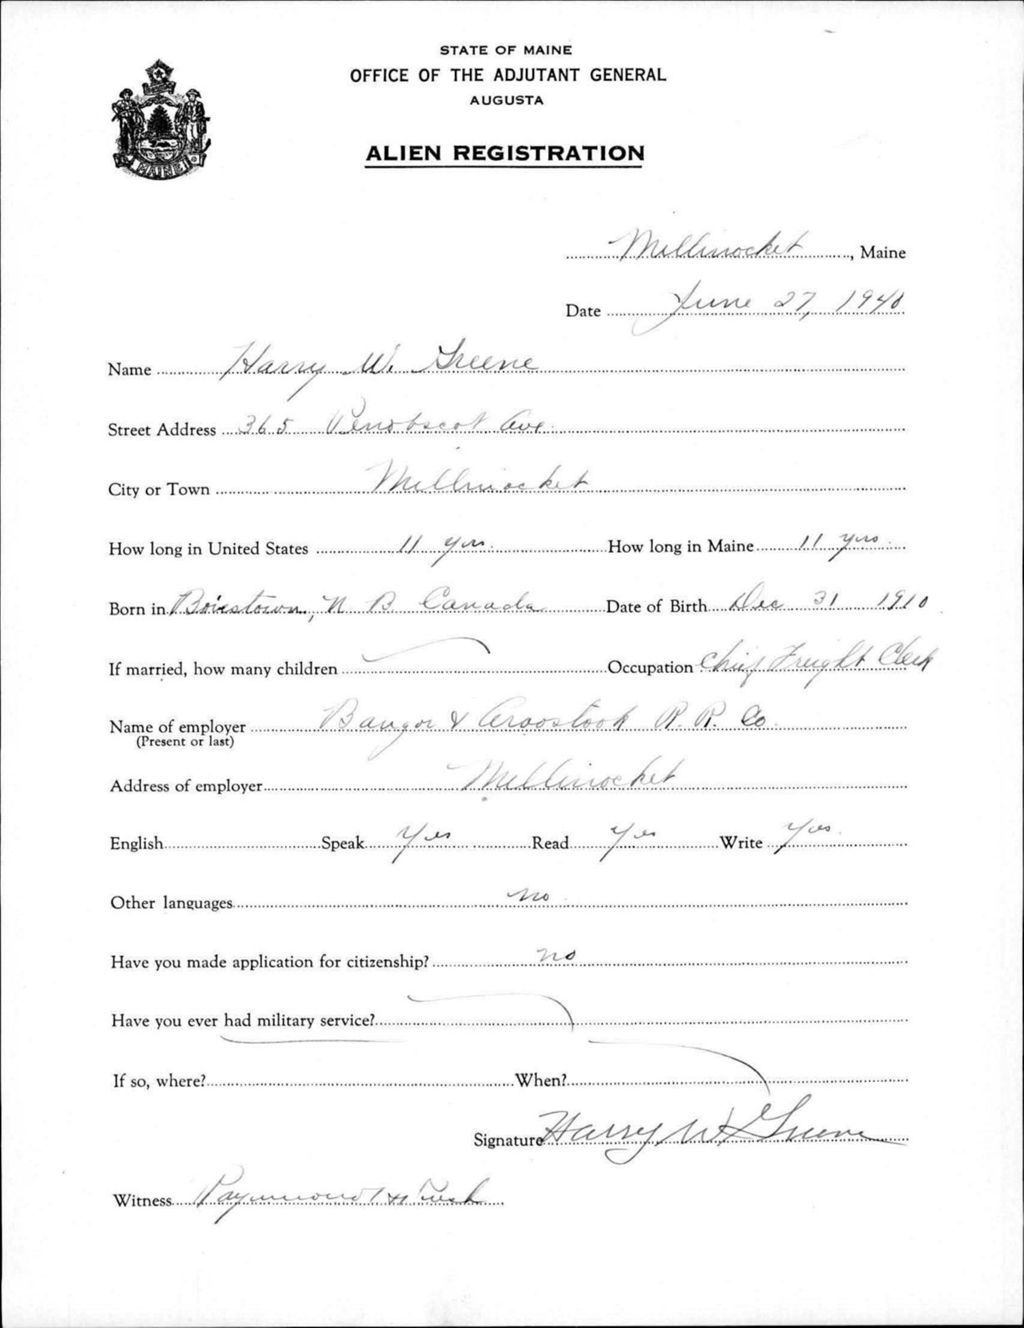 STATE OF MAINE
OFFICE OF THE ADJUTANT GENERAL
AUGUSTA
ALIEN REGISTRATION
MAINE
Millinocket, Maine
Date June 27, 1940
Name Harry W. Greene
Street Address 365 Penobscot Ave.
City or Town Millinocket
How long in United States 11 yrs. How long in Maine 11 yrs.
Born in Boiestown, N B Canada Date of Birth Dec 31 1910
If married, how many children Occupation Chief Freight Clerk
Name of employer Bangor & Aroostook R. R. Co.
(Present or last)
Address of employer Millinocket
English Speak Yes Read Yes Write Yes
Other languages no
Have you made application for citizenship? no
Have you ever had military service?
If so, where? When?
Signature Harry W Greene
Witness Raymond H